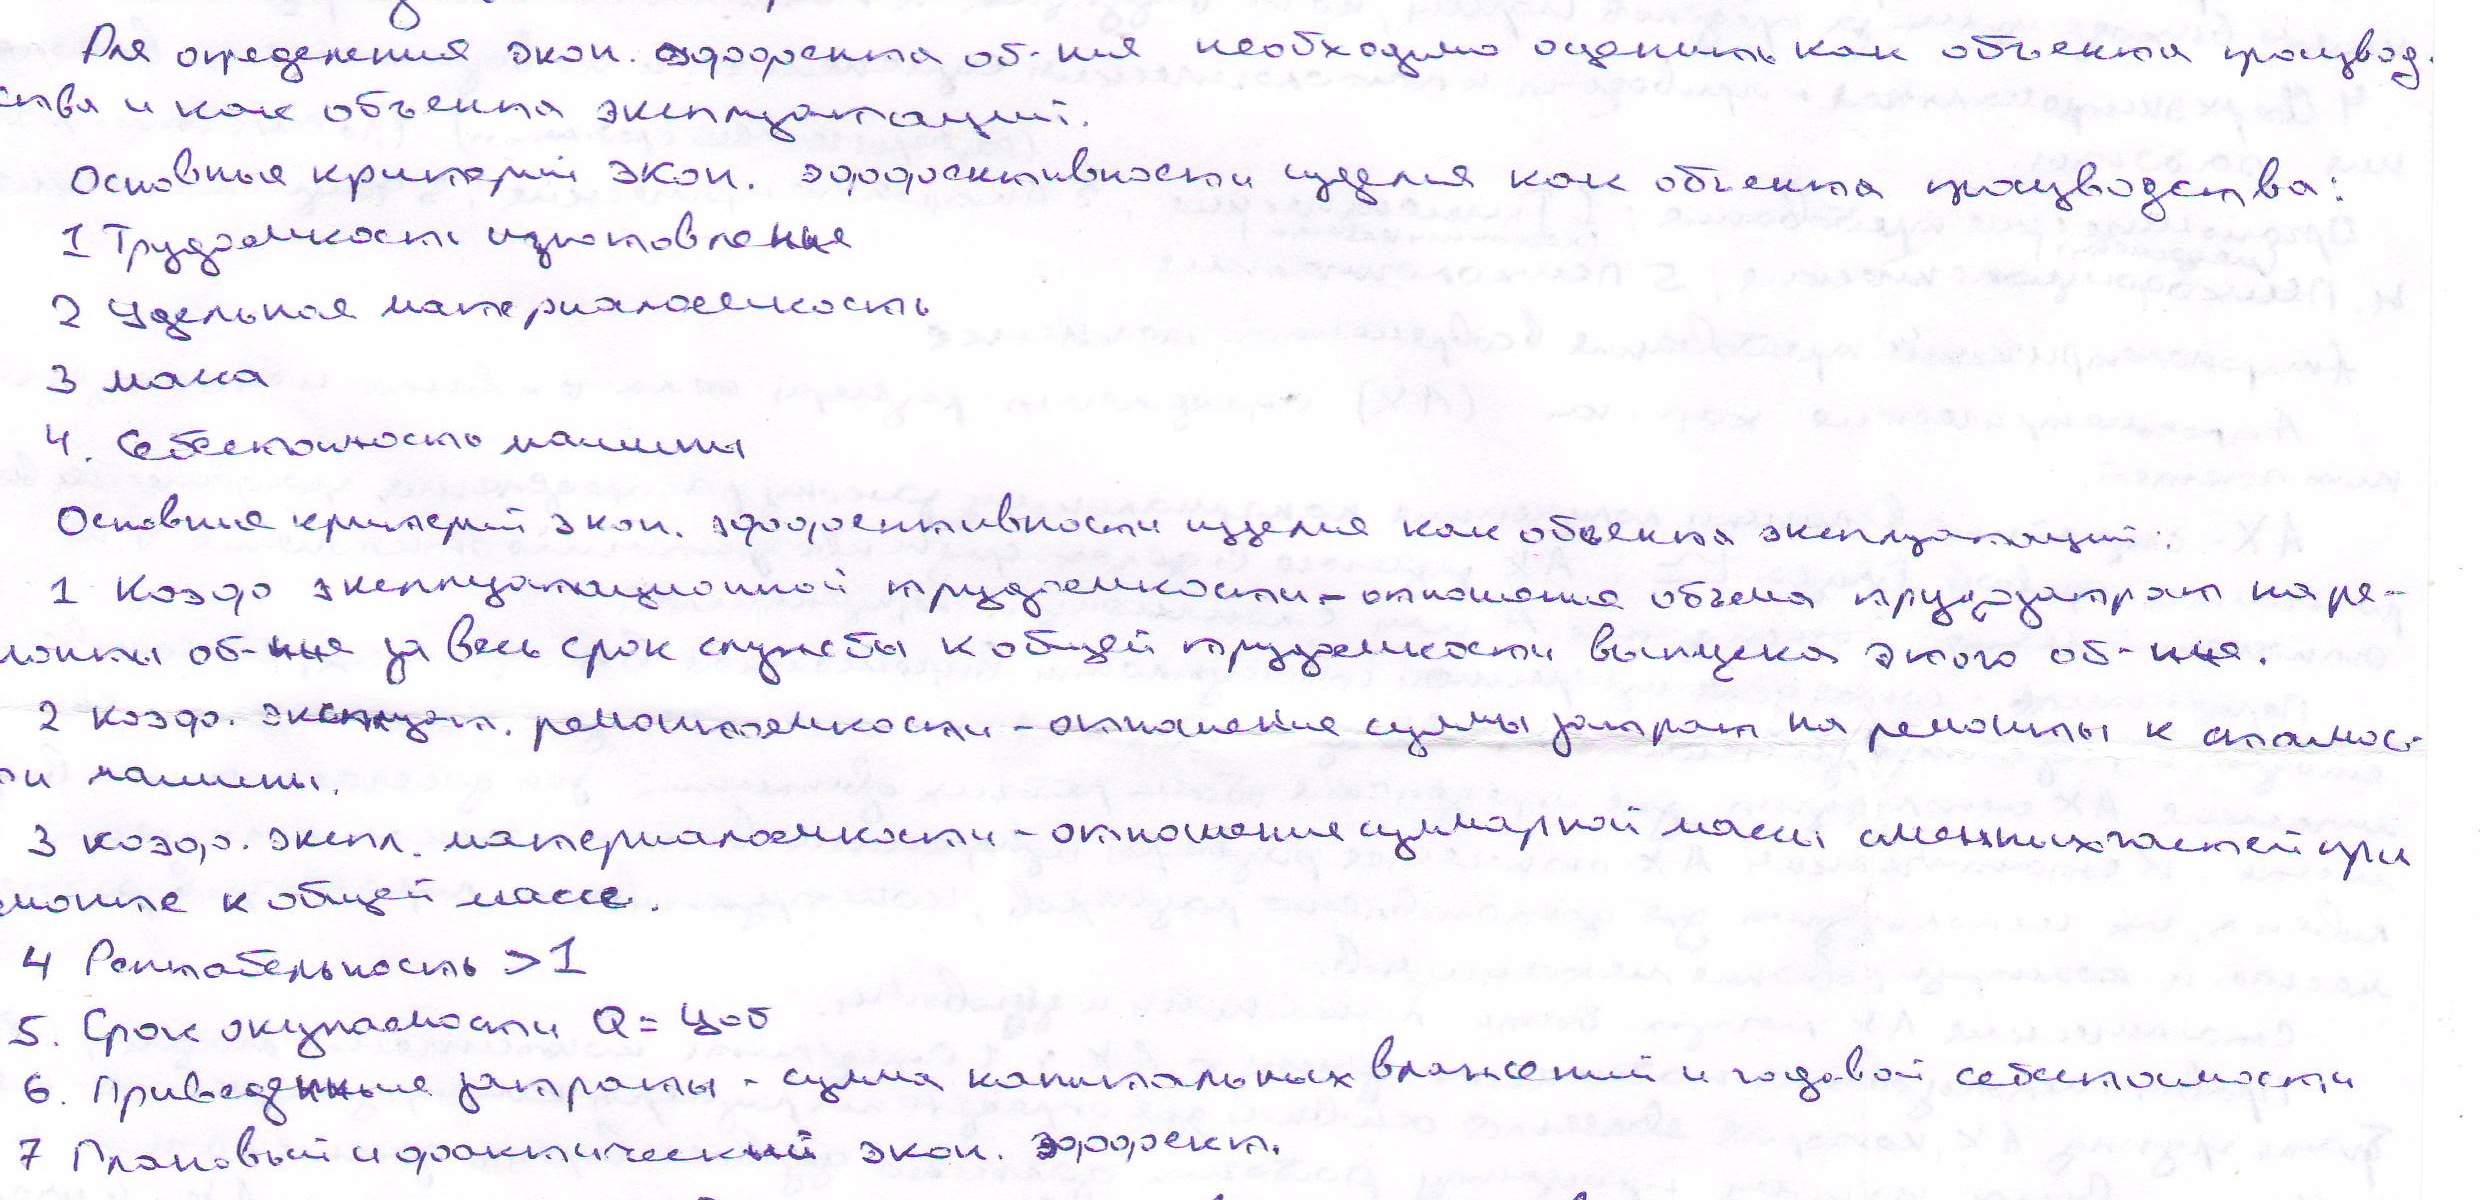 Для определения экон. эффекта об-ния необходимо оценить как объекта производ.
ства и как объекта эксплуатаций.
Основные критерий экон. эффективности изделия как объекта производства:
1 Трудоемкость изготовления
2 Удельная материалоемкость
3 масса
4. Себестоимость машины
Основные критерий экон. эффективности изделия как объекта эксплуатаций:
1 Коэфф эксплуатационной трудоемкости - отношение объема трудозатрат на ре-
монты об-ния за весь срок службы к общей трудоемкости выпуска этого об-ния.
2 коэфф. эксплуат. ремонтоемкости - отношение суммы затрат на ремонты к стоимос-
ти машины.
3 коэфф. экспл. материалоемкости - отношение суммарной массы сменных частей при
монте к общей массе.
4 Рентабельность >1
5. Срок окупаемости Q = Цоб
6. Приведенные затраты - сумма капитальных вложений и годовой себестоимости
7 Плановый и фактический экон. эффект.